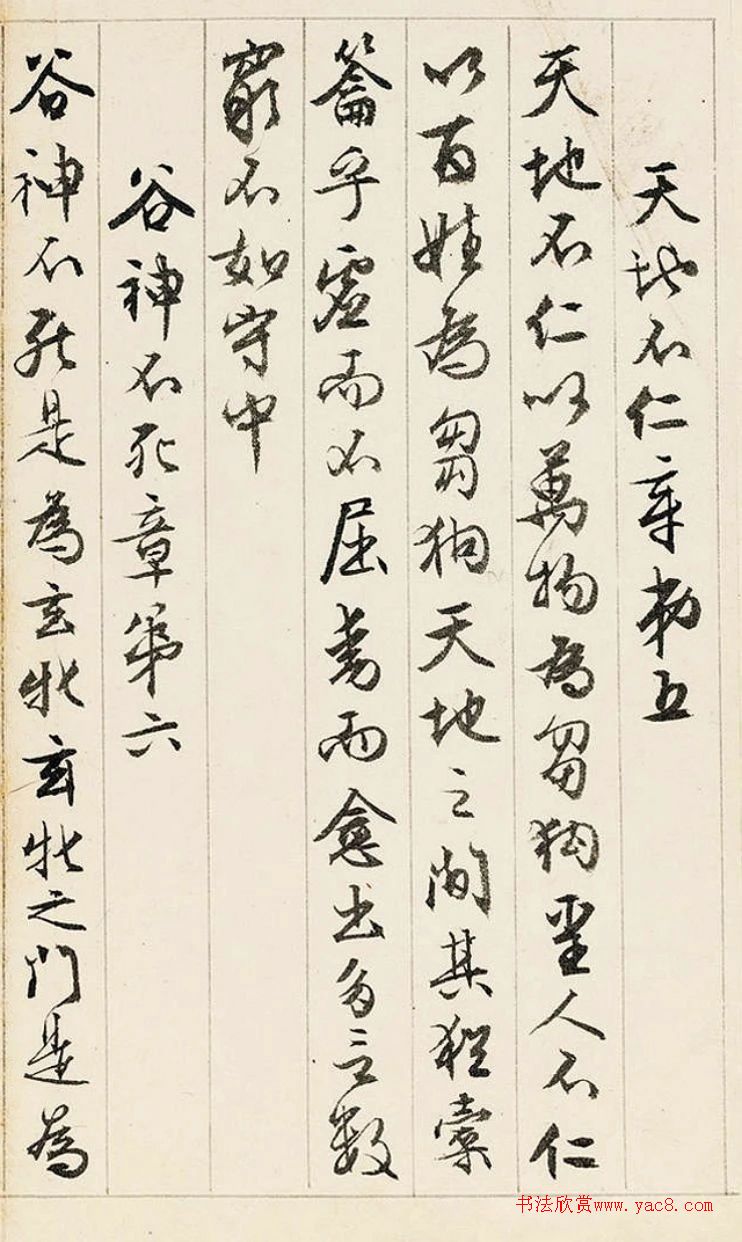 天地不仁章第五
天地不仁以萬物為芻狗聖人不仁
以百姓為芻狗天地之間其猶橐
籥乎虛而不屈動而愈出多言數
窮不如守中
谷神不死章第六
谷神不死是為玄牝玄牝之門是為
书法欣赏www.yac8.com